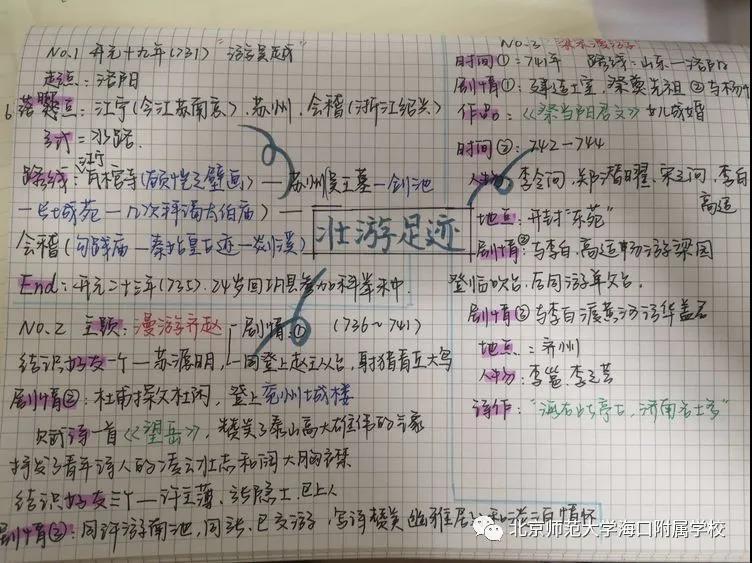 No.1 开元十九年(731) "游吴越"
起点:洛阳
落点:江宁(今江苏南京)、苏州、会稽(浙江绍兴)
方式=水路.
江宁
路线:瓦棺寺(顾恺之壁画)—苏州吴王墓—剑池
—长城苑—几次拜谒太伯庙)—
会稽(勾践庙—秦始皇古迹—剡溪)
End:开元二十三年(735).24岁回巩县参加科举未中.
壮游足迹
No.2 主题:漫游齐赵—剧情:① (736~741)
结识好友一个—苏源明,一同登上赵王丛台,射猎青丘大鸟
剧情②:杜甫探父杜闲,登上兖州城楼
赋诗一首《望岳》,赞美了泰山高大雄伟的气象
抒发了青年诗人的凌云壮志和阔大胸襟
结识好友三个—许主薄、张隐士、巳上人
剧情③:同许游南池,同张、巳交游,写诗赞美幽雅居
情怀
No.3
时间①:741年 路线:山东—洛阳
剧情①:建造土室,祭奠先祖②与杨
作品:《祭当阳君文》女儿成婚
时间②:742—744
人物:李令问,郑潜曜、宋之问、李白
高适
地点:开封"东苑"
剧情②:与李白、高适畅游梁园
登临吹台,后同游单父台.
剧情③与李白渡黄河访华盖君
地点:齐州
人物:李邕.李之芳
诗作:"海右此亭古,济南名士多"
北京师范大学海口附属学校